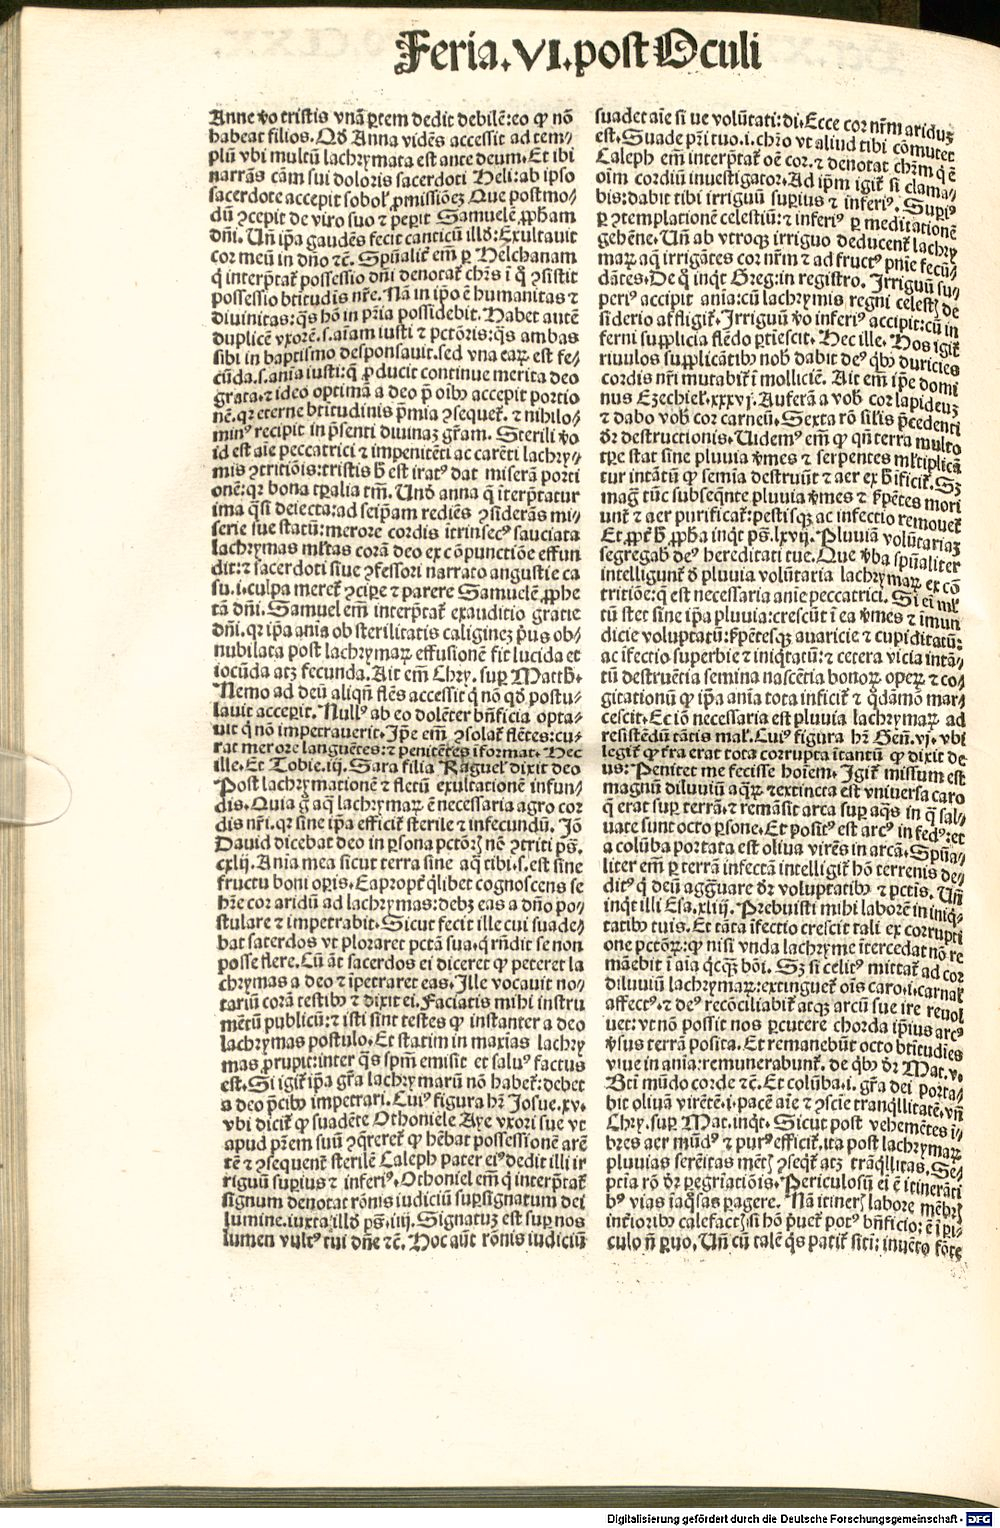 Feria.VI.post Oculi
Anne ꝟo tristis vnã ꝑtem dedit debilẽ:eo ꝙ nõ
habeat filios. Qđ Anna vidẽs accessit ad tem⸗
plũ vbi multũ lachrymata est ante deum. Et ibi
narrãs cãm sui doloris sacerdoti Heli: ab ipso
sacerdote accepit sobolẽ ꝓmissiõeꝫ Que postmo⸗
dũ ꝯcepit de viro suo ⁊ peꝑit Samuelẽ ꝓpham
dñi. Uñ ip̃a gaudẽs fecit canticũ illđ: Exultauit
cor meũ in dño ⁊c̃. Spũalit̃ em̃ ꝑ Helchanam
q̇ interp̃tat᷑ possessio dñi denotat᷑ chr̃s ĩ q̇ ꝯsistit
possessio bt̃itudis nr̃e. Nã in ip̃o ẽ humanitas ⁊
diuinitas: q̃s hõ in pr̃ia possidebit. Habet autẽ
duplicẽ vxorẽ.s.aĩam iusti ⁊ pctõris: q̃s ambas
sibi in baptismo desponsauit. sed vna eaꝝ est fe⸗
cũda.s.anĩa iusti: q̃ ꝓducit continue merita deo
grata. ⁊ ideo optimã a deo p̃ oĩbꝰ accepit portio
nẽ. qꝛ eterne bt̃itudinis p̃mia ꝯsequet᷑. ⁊ nihilo⸗
minꝰ recipit in p̃senti diuinaꝫ gr̃am. Sterili ꝟo
id est aĩe peccatrici ⁊ impenitẽti ac carẽti lachry⸗
mis ꝯtritiõis: tristis h̃ est iratꝰ dat miserã porti
onẽ: qꝛ bona tꝑalia tm̃. Unđ anna q̃ ĩterp̃tatur
ima q̃si deiecta: ad seip̃am rediẽs ꝯsiderãs mi⸗
serie sue statũ: merore cordis ĩtrinsecꝰ sauciata
lachrymas ml̃tas corã deo ex cõpunctiõe effun
dit: ⁊ sacerdoti siue ꝯfessori narrato angustie ca
su.i.culpa meret᷑ ꝯciꝑe ⁊ parere Samuelẽ ꝓphe
tã dñi. Samuel em̃ interp̃tat᷑ exauditio gratie
dñi. qꝛ ip̃a anĩa ob sterilitatis caligineꝫ p̃us ob⸗
nubilata post lachrymaꝝ effusionẽ fit lucida et
iocũda atꝫ fecunda. Ait em̃ Chry. suꝑ Matth̃.
Nemo ad deũ aliqñ flẽs accessit q̇ nõ qđ postu⸗
lauit acceꝑit. Nullꝰ ab eo dolẽter bñficia opta⸗
uit q̇ nõ impetrauerit. Ip̃e em̃ ꝯsolat᷑ flẽtes: cu⸗
rat merore languẽtes: ⁊ penitẽtes ĩformat. Hec
ille. Et Tobie.iij. Sara filia Raguel̃ dixit deo
Post lachrymationẽ ⁊ fletũ exultationẽ infun⸗
dis. Quia g̃ aq̃ lachrymaꝝ ẽ necessaria agro cor
dis nr̃i. qꝛ sine ip̃a efficit᷑ sterile ⁊ infecundũ. Iõ
Dauid dicebat deo in ꝑsona pctõrꝫ nõ ꝯtriti ps̃.
cxlij. Anĩa mea sicut terra sine aq̃ tibi.s.est sine
fructu boni oꝑis. Eapropt̃ q̃libet cognoscens se
hr̃e cor aridũ ad lachrymas: debꝫ eas a dño po⸗
stulare ⁊ impetrabit. Sicut fecit ille cui suade⸗
bat sacerdos vt ploraret pctã sua. q̇ rñdit se non
posse flere. Cũ aũt sacerdos ei diceret ꝙ peteret la
chrymas a deo ⁊ ĩpetraret eas. Ille vocauit no⸗
tariũ corã testibꝰ ⁊ dixit ei. Faciatis mihi instru
mẽtũ publicũ: ⁊ isti sint testes ꝙ instanter a deo
lachrymas postulo. Et statim in maxĩas lachry
mas ꝓrupit: inter q̃s spm̃ emisit et saluꝰ factus
est. Si igit᷑ ip̃a gr̃a lachrymarũ nõ habet᷑: debet
a deo p̃cibꝰ impetrari. Cuiꝰ figura hr̃ Iosue.xv.
vbi dicit᷑ ꝙ suadẽte Othoniele Axe vxori sue vt
apud pr̃em suũ ꝯq̃reret᷑ ꝙ hẽbat possessionẽ arẽ
tẽ ⁊ ꝯsequent̃ sterilẽ Caleph pater eiꝰ dedit illi ir
riguũ suꝑius ⁊ inferiꝰ. Othoniel em̃ q̇ interp̃tat᷑
signum denotat rõnis iudiciũ suꝑsignatum dei
lumine. iuxta illđ ps̃.iiij. Signatuꝫ est suꝑ nos
lumen vultꝰ tui dñe ⁊c̃. Hoc aũt rõnis iudiciũ
suadet aĩe si ue volũtati: di. Ecce cor nr̃m ariduꝫ
est. Suade pr̃i tuo.i.chr̃o vt aliud tibi cõmutet
Caleph em̃ interp̃tat᷑ oẽ cor. ⁊ denotat chr̃m q̇ ẽ
oĩm cordiũ inuestigator. Ad ip̃m igit᷑ si clama⸗
bis: dabit tibi irriguũ suꝑius ⁊ inferiꝰ. Suꝑiꝰ
ꝑ ꝯtemplationẽ celestiũ: ⁊ inferiꝰ ꝑ meditationẽ
gehẽne. Uñ ab vtroqꝫ irriguo deducent᷑ lachry
maꝝ aq̃ irrigãtes cor nr̃m ⁊ ad fructꝰ pnĩe fecũ⸗
dãtes. De q̇ inq̇t Greg: in registro. Irriguũ su⸗
periꝰ accipit anĩa: cũ lachrymis regni celestꝫ de
siderio affligit᷑. Irriguũ ꝟo inferiꝰ accipit: cũ in
ferni supplicia flẽdo ꝑtiescit. Hec ille. Hos igit᷑
riuulos supplicãtibꝰ nob̃ dabit deꝰ q̇bꝰ duricies
cordis nr̃i mutabit᷑ ĩ molliciẽ. Ait em̃ ip̃e domi
nus Ezechiel̃.xxxvj. Auferã a vob̃ cor lapideuꝫ
⁊ dabo vob̃ cor carneũ. Sexta rõ sil̃is p̃cedenti
dr̃ destructionis. Uidemꝰ em̃ ꝙ qñ terra multo
tꝑe stat sine pluuia ꝟmes ⁊ serpentes ml̃tiplicã
tur intãtũ ꝙ semĩa destruũt ⁊ aer ex h̃ ĩficit᷑. Sꝫ
mag̃ tũc subseq̃nte pluuia ꝟmes ⁊ ẜpẽtes mori
unt᷑ ⁊ aer purificat᷑: pestisqꝫ ac infectio remouet᷑
Et ꝓpt̃ h̃ ꝓpha inq̇t ps̃.lxvij. Pluuiã volũtariaꝫ
segregab̃ deꝰ hereditati tue. Que ꝟba spũaliter
intelligunt᷑ đ pluuia volũtaria lachrymaꝝ ex cõ
tritiõe: q̃ est necessaria anĩe peccatrici. Si eĩ ml̃
tũ stet sine ip̃a pluuia: crescũt ĩ ea ꝟmes ⁊ ĩmun
dicie voluptatũ: ẜpẽtesqꝫ auaricie ⁊ cupiditatũ:
ac ĩfectio superbie ⁊ iniq̇tatũ: ⁊ cetera vicia intã⸗
tũ destruẽtia semina nascẽtia bonoꝝ opeꝝ ⁊ co⸗
gitationũ ꝙ ip̃a anĩa tota inficit᷑ ⁊ q̇dãmõ mar⸗
cescit. Et iõ necessaria est pluuia lachrymaꝝ ad
resistẽdũ tãtis mal̃. Cuiꝰ figura hr̃ Geñ.vj. vbi
legit᷑ ꝙ t̃ra erat tota corrupta ĩtantũ ꝙ dixit de
us: Penitet me fecisse hoĩem. Igit᷑ missum est
magnũ diluuiũ aq̃ꝝ ⁊ extincta est vniuersa caro
q̃ erat suꝑ terrã. ⁊ remãsit arca suꝑ aq̃s in q̃ sal⸗
uate sunt octo ꝑsone. Et positꝰ est arcꝰ in fedꝰ: et
a colũba portata est oliua virẽs in arcã. Spũa⸗
liter em̃ ꝑ terrã infectã intelligit᷑ hõ terrenis de⸗
ditꝰ q̇ deũ aggrauare dr̃ voluptatibꝰ ⁊ pctis. Uñ
inq̇t illi Esa.xliij. Prebuisti mihi laborẽ in iniq̇⸗
tatibꝰ tuis. Et tãta ĩfectio crescit tali ex corrupti
one pctõꝝ: ꝙ nisi vnda lachryme ĩtercedat nõ re
manebit ĩ aĩa q̇cqꝫ bõi. Sꝫ si celitꝰ mittat᷑ ad cor
diluuiũ lachrymaꝝ: extinguet᷑ oĩs caro.i.carnal̃
affectꝰ. ⁊ deꝰ recõciliabit᷑ atqꝫ arcũ sue ire reuol
uet: vt nõ possit nos ꝑcutere chorda ip̃ius arcꝰ
ꝟsus terrã posita. Et remanebũt octo bt̃itudies
viue in anĩa: remunerabunt᷑. de q̇bꝰ dr̃ Mat.v.
Bt̃i mũdo corde ⁊c̃. Et colũba.i.gr̃a dei porta⸗
bit oliuã virẽtẽ.i.pacẽ aĩe ⁊ ꝯsciẽ tranq̇llitatẽ. vñ
Chry. suꝑ Mat. inq̇t. Sicut post vehemẽtes ĩ⸗
bres aer mũdꝰ ⁊ purꝰ efficit᷑. ita post lachrymaꝝ
pluuias serẽitas mẽtꝫ ꝯseq̇t᷑ atꝫ trãq̇llitas. Se⸗
ptĩa rõ dr̃ ꝑegriatiõis. Periculosũ eĩ ẽ itinerãti
bꝰ vias iaq̃sas ꝑagere. Nã itinerꝫ labore mẽbrꝫ
int̃ioribꝰ calefactꝫ: si hõ p̃uet᷑ potꝰ bñficio: ẽ ĩ ꝑi⸗
culo ñ ꝑuo. Uñ cũ talẽ q̇s patit᷑ sitĩ: inuẽto fõte
Digitalisierung gefördert durch die Deutsche Forschungsgemeinschaft - DFG